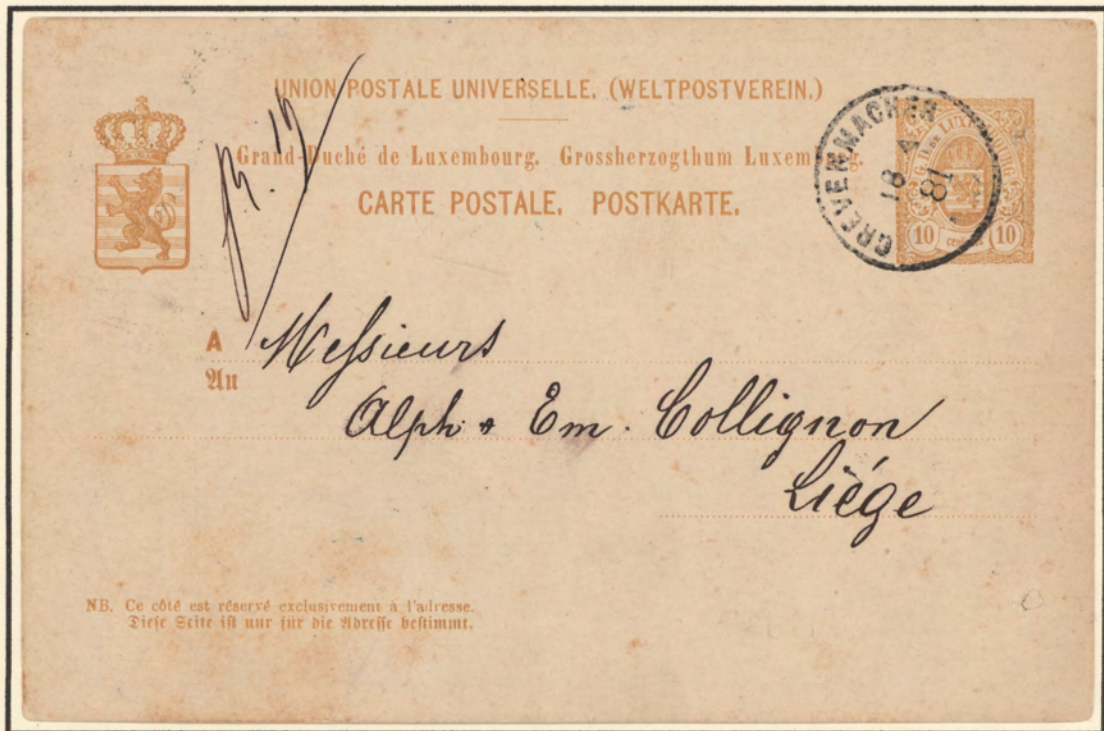 UNION POSTALE UNIVERSELLE. (WELTPOSTVEREIN.)
Grand-Duché de Luxembourg. Grossherzogthum Luxemburg.
CARTE POSTALE. POSTKARTE.
GREVENMACHER
18
81
G. D. DE LUXEMBOURG
10 centimes 10
A Messieurs
An
Alph. & Em. Collignon
Liége
NB. Ce côté est réservé exclusivement à l'adresse.
Diese Seite ist nur für die Adresse bestimmt.